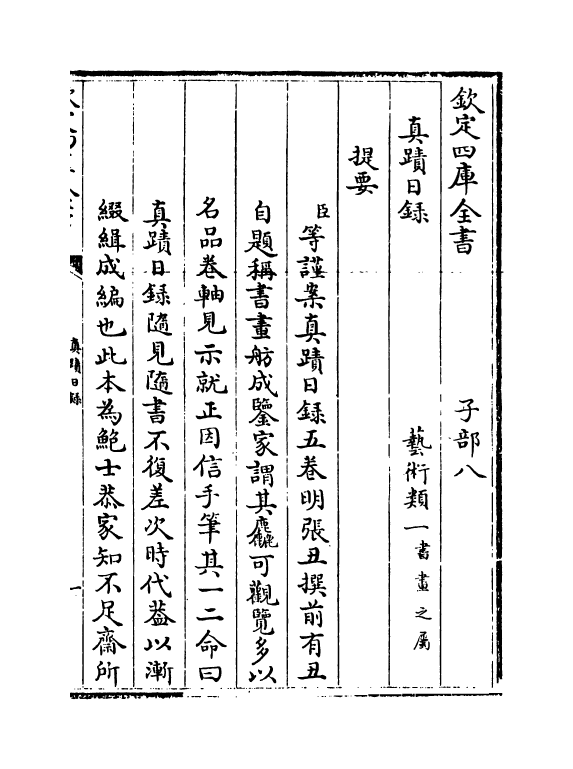 欽定四庫全書　子部八
真蹟日録　藝術類一書畫之屬
提要
臣等謹案真蹟日録五卷明張丑撰前有丑
自題稱書畫舫成鑒家謂其麤可觀覽多以
名品卷軸見示就正因信手筆其一二命曰
真蹟日録隨見隨書不復差次時代葢以漸
綴緝成編也此本為鮑士恭家知不足齋所
真蹟日録
一